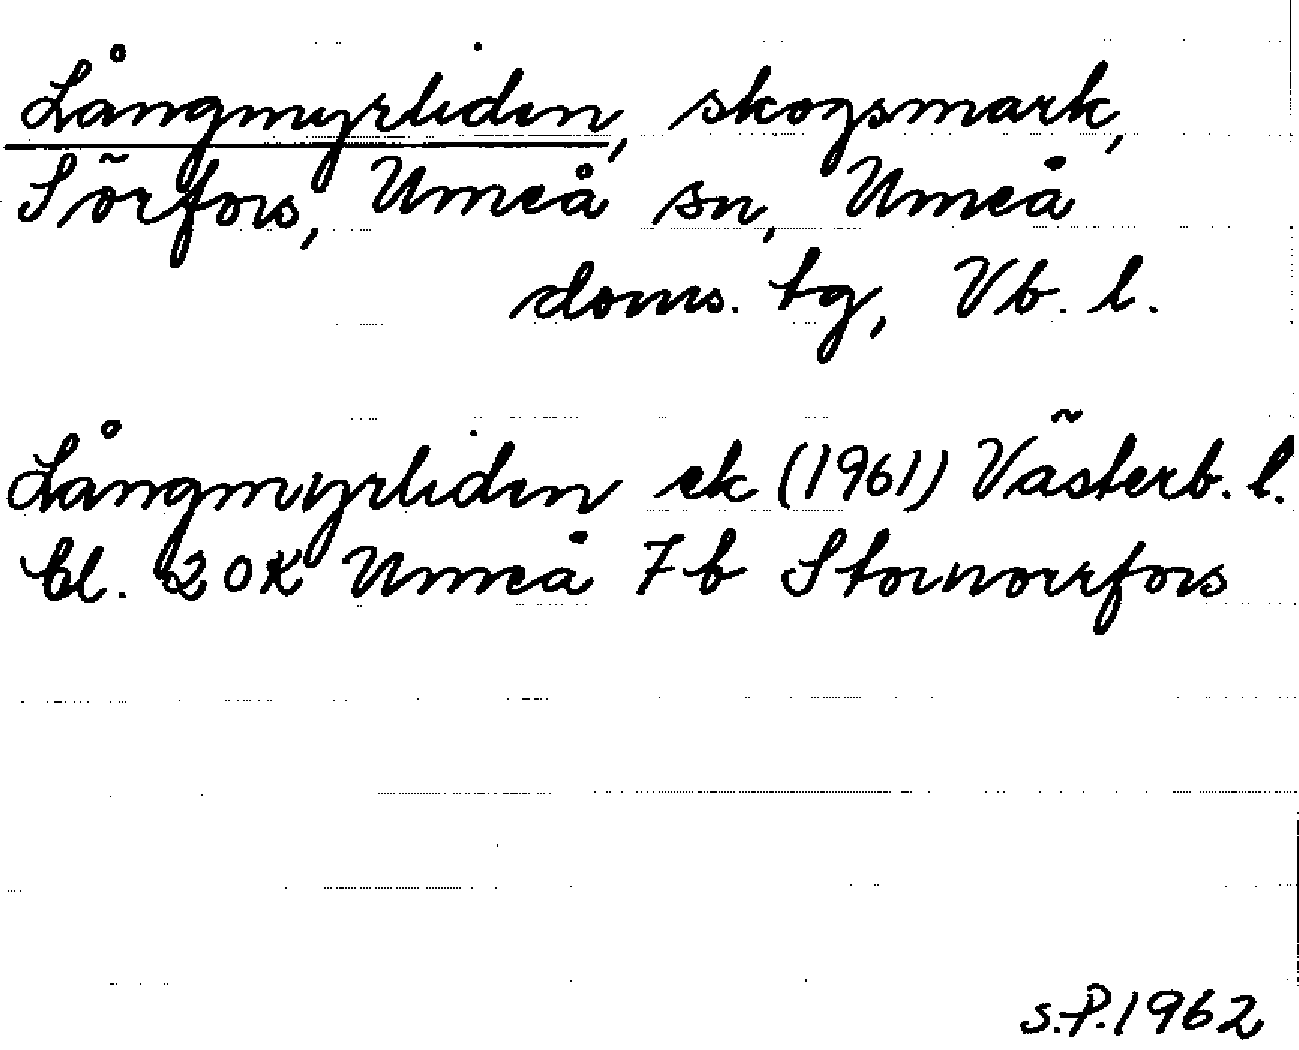 Långmyrliden, skogsmark,
Sörfors, Umeå sn, Umeå
doms. tg, Vb. l.
Långmyrliden ek (1961) Västerb. l.
bl. 20K Umeå 7b Stornorrfors
S.P. 1962